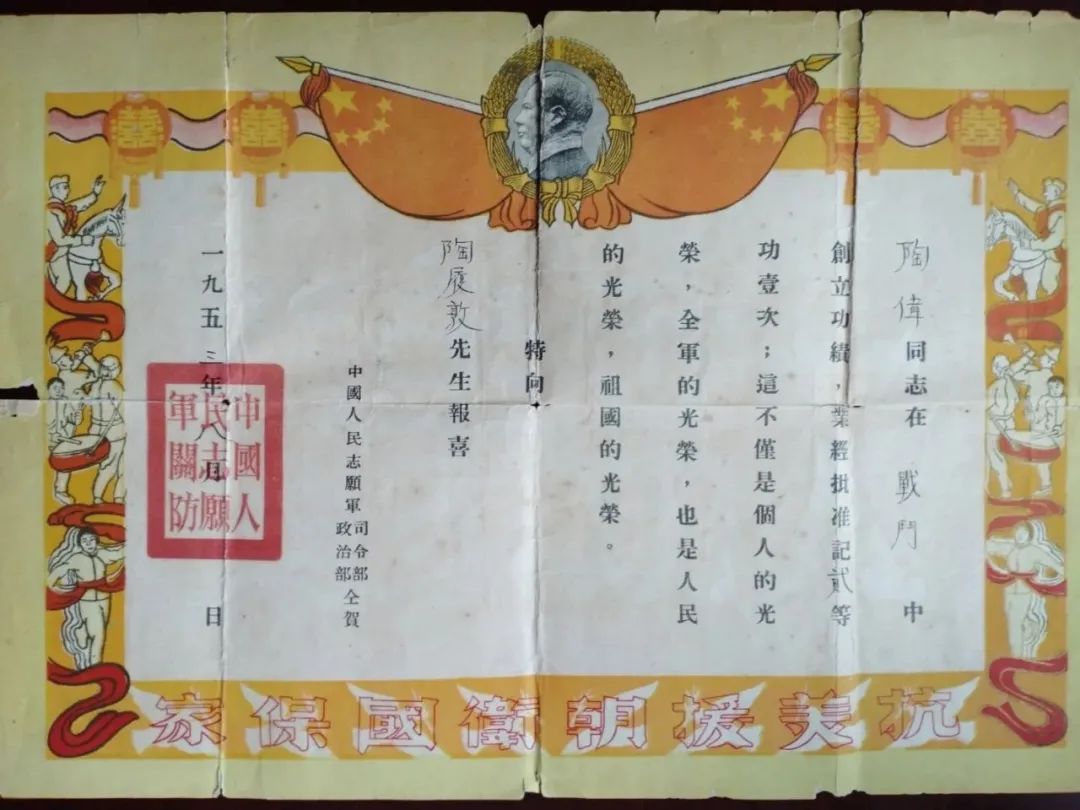 陶偉同志在 戰鬥 中
創立功績，業經批准記貳等
功壹次；這不僅是個人的光
榮，全軍的光榮，也是人民
的光榮，祖國的光榮。
特向
陶履敦先生報喜
中國人民志願軍司令部
政治部仝賀
一九五三年八月 日
中國人
民志願
軍關防
抗美援朝衛國保家
囍
囍
囍
囍